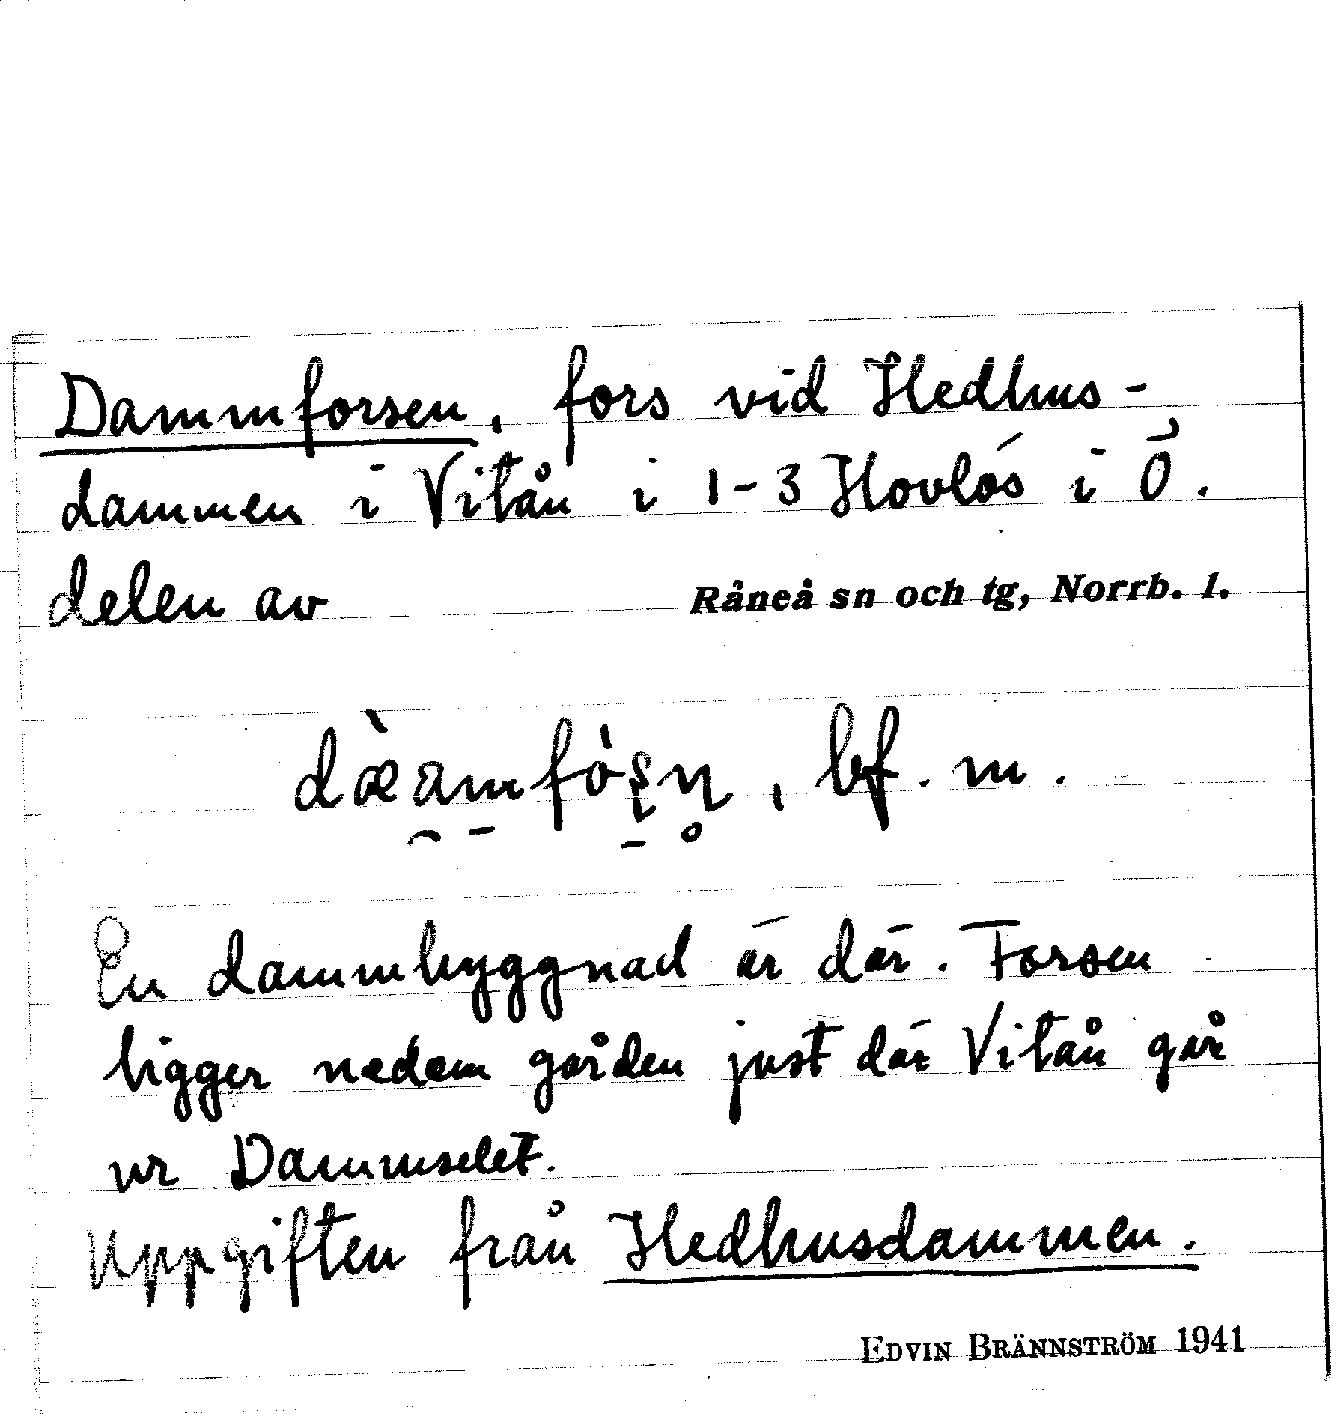 Dammforsen, fors vid Hedhus-
dammen i Vitån i 1-3 Hovlös i Ö.
delen av Råneå sn och tg, Norrb. l.
bf. m.
En dammbyggnad är där. Forsen
ligger nedom gården just där Vitån går
ur Dammselet.
Uppgiften från Hedhusdammen.
EDVIN BRÄNNSTRÖM 1941